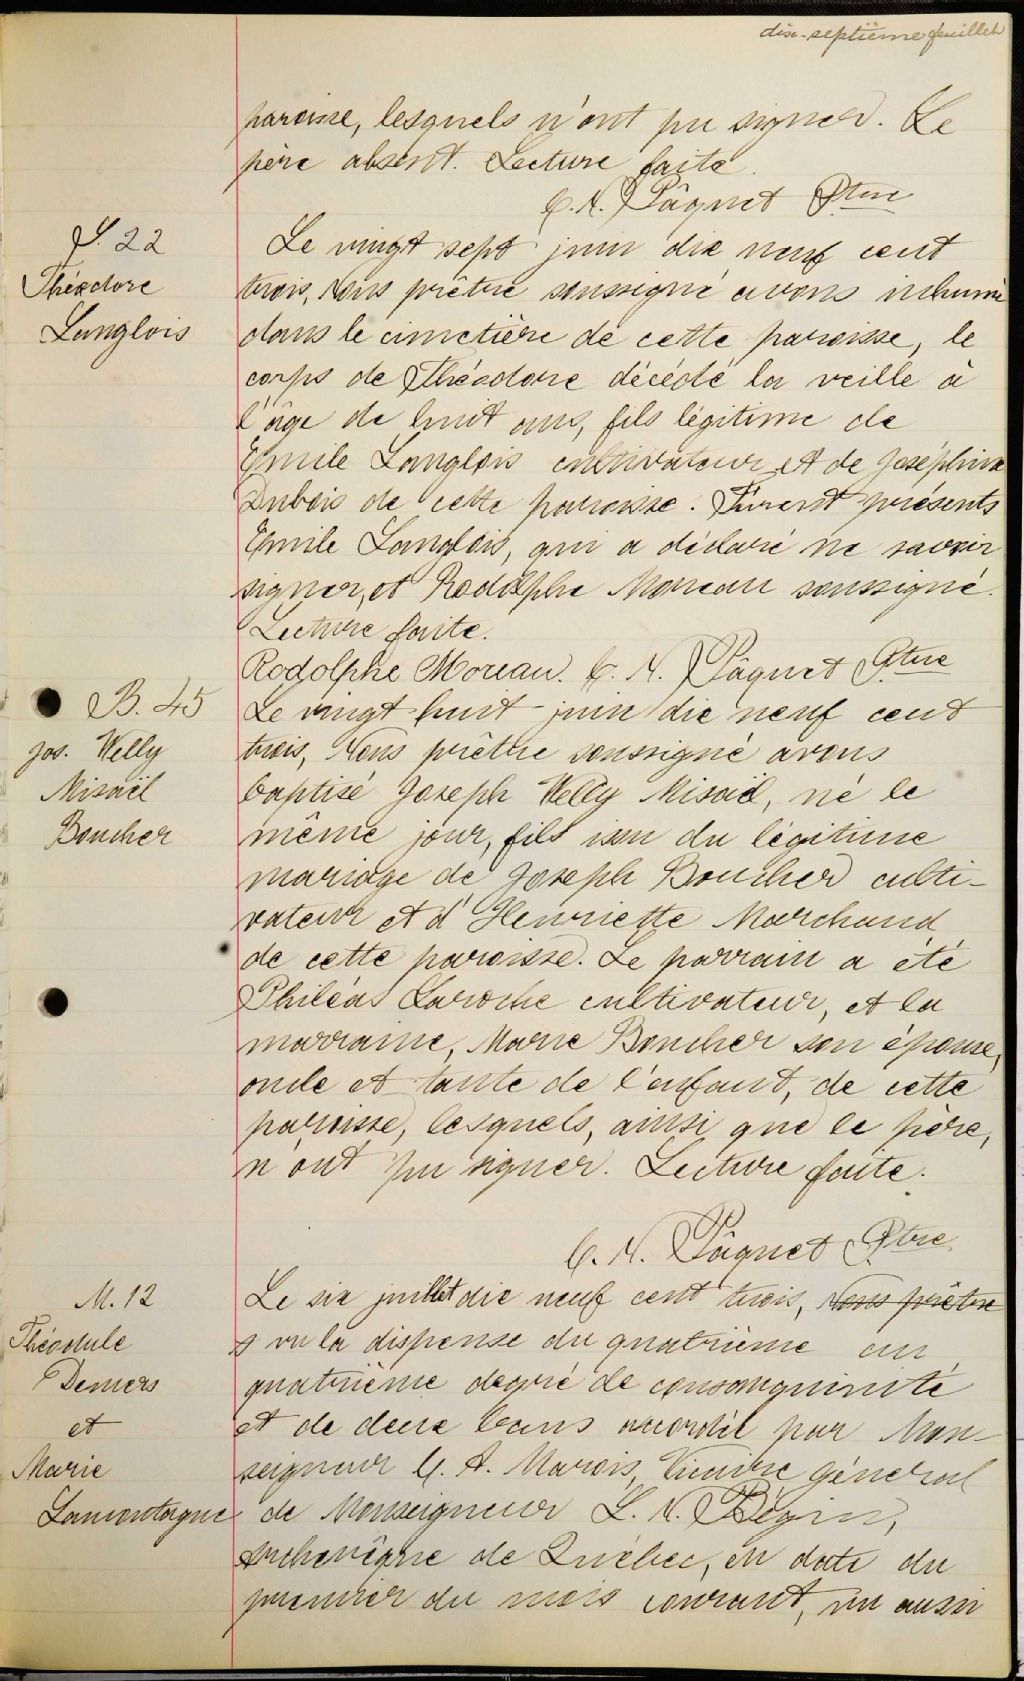 dix-septième feuillet
paroisse, lesquels n'ont pu signer. Le
père absent. Lecture faite.
C. N. Pâquet Ptre
S. 22
Théodore
Langlois
Le vingt sept juin dix neuf cent
trois, Nous prêtre soussigné avons inhumé
dans le cimetière de cette paroisse, le
corps de Théodore décédé la veille à
l'âge de huit ans, fils légitime de
Emile Langlois cultivateur et de Joséphine
Dubois de cette paroisse. Furent présents
Emile Langlois, qui a déclaré ne savoir
signer, et Rodolphe Moreau soussigné.
Lecture faite.
Rodolphe Moreau. C. N. Pâquet Ptre
B. 45
Jos. Welly
Misaël
Boucher
Le vingt huit juin dix neuf cent
trois, Nous prêtre soussigné avons
baptisé Joseph Welly Misaël, né le
même jour, fils issu du légitime
mariage de Joseph Boucher culti-
vateur et d'Henriette Marchand
de cette paroisse. Le parrain a été
Philéas Laroche cultivateur, et la
marraine, Marie Boucher son épouse,
oncle et tante de l'enfant, de cette
paroisse, lesquels, ainsi que le père,
n'ont pu signer. Lecture faite.
C. N. Pâquet Ptre
M. 12
Théodule
Demers
et
Marie
Lamontagne
Le six juillet dix neuf cent trois, Nous prêtre
vu la dispense du quatrième au
quatrième degré de consanguinité
et de deux bans accordée par Mon-
seigneur C. A. Marois, Vicaire Général
de Monseigneur L. N. Bégin,
Archevêque de Québec, en date du
premier du mois courant, vu aussi